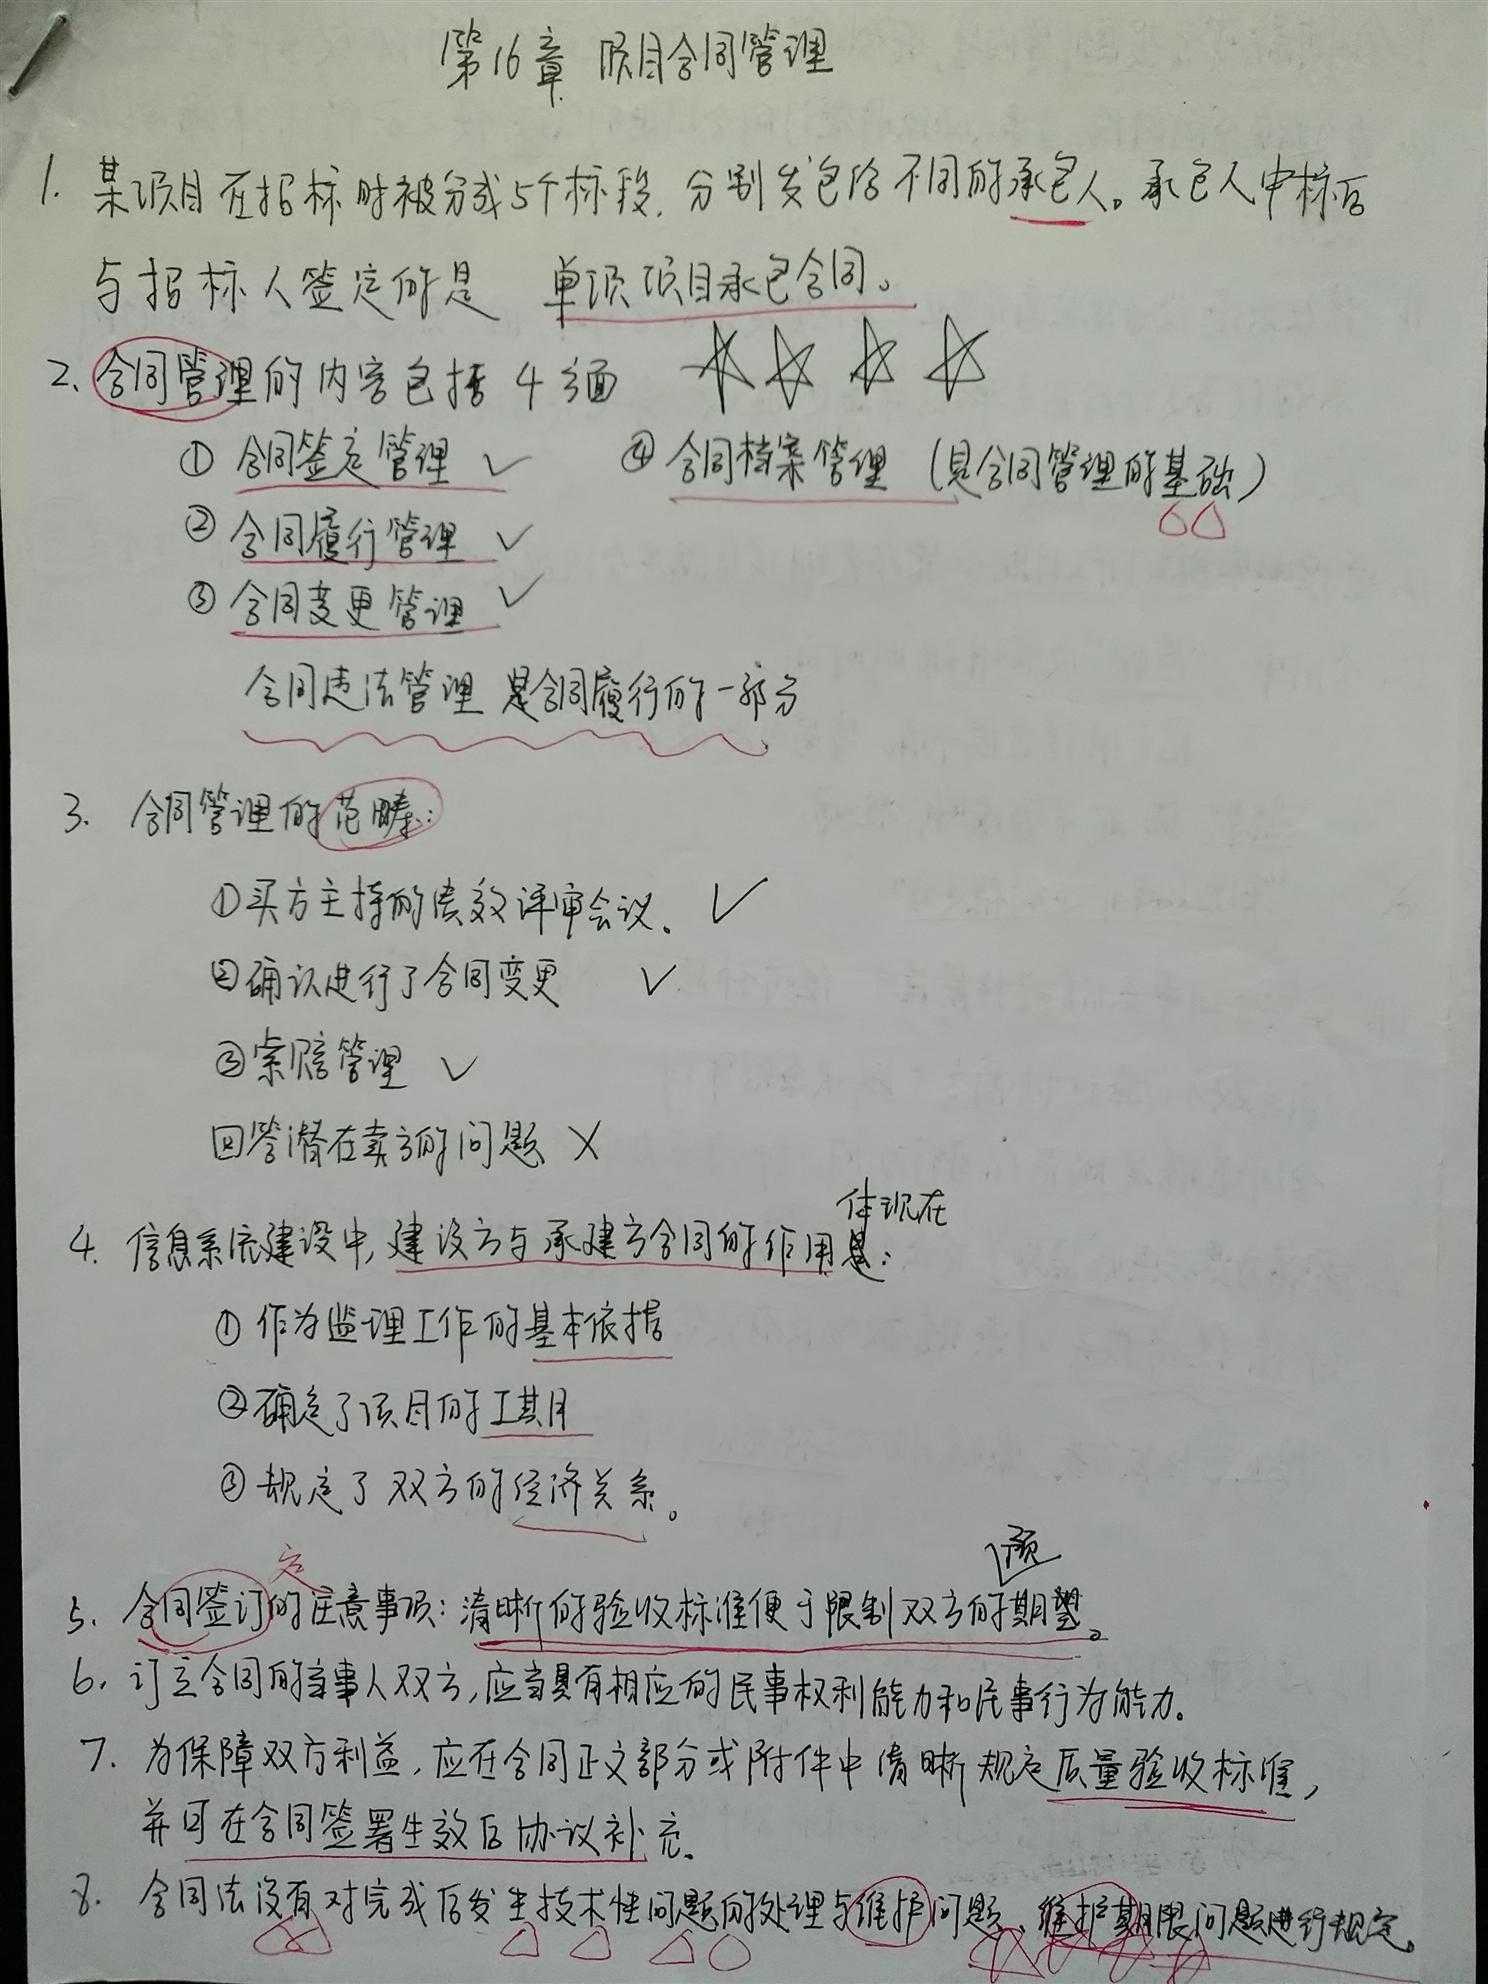 第16章 项目合同管理
1. 某项目在招标时被分成5个标段，分别发包给不同的承包人。承包人中标后
与招标人签定的是 单项项目承包合同。
2、合同管理的内容包括4方面 ☆☆☆☆
① 合同签定管理 ✓ ④ 合同档案管理（是合同管理的基础）
② 合同履行管理 ✓
③ 合同变更管理 ✓
合同违法管理 是合同履行的一部分
3. 合同管理的范畴：
①买方主持的绩效评审会议。 ✓
②确认进行了合同变更 ✓
③索赔管理 ✓
④答潜在卖方的问题 ×
体现在
4. 信息系统建设中，建设方与承建方合同的作用是：
① 作为监理工作的基本依据
②确定了项目的工期
③ 规定了双方的经济关系。
定 预
5. 合同签订的注意事项：清晰的验收标准便于限制双方的期望。
6. 订立合同的当事人双方，应当具有相应的民事权利能力和民事行为能力。
7. 为保障双方利益，应在合同正文部分或附件中清晰规定质量验收标准，
并可在合同签署生效后协议补充。
8. 合同法没有对完成后发生技术性问题的处理与维护问题、维护期限问题进行规定。